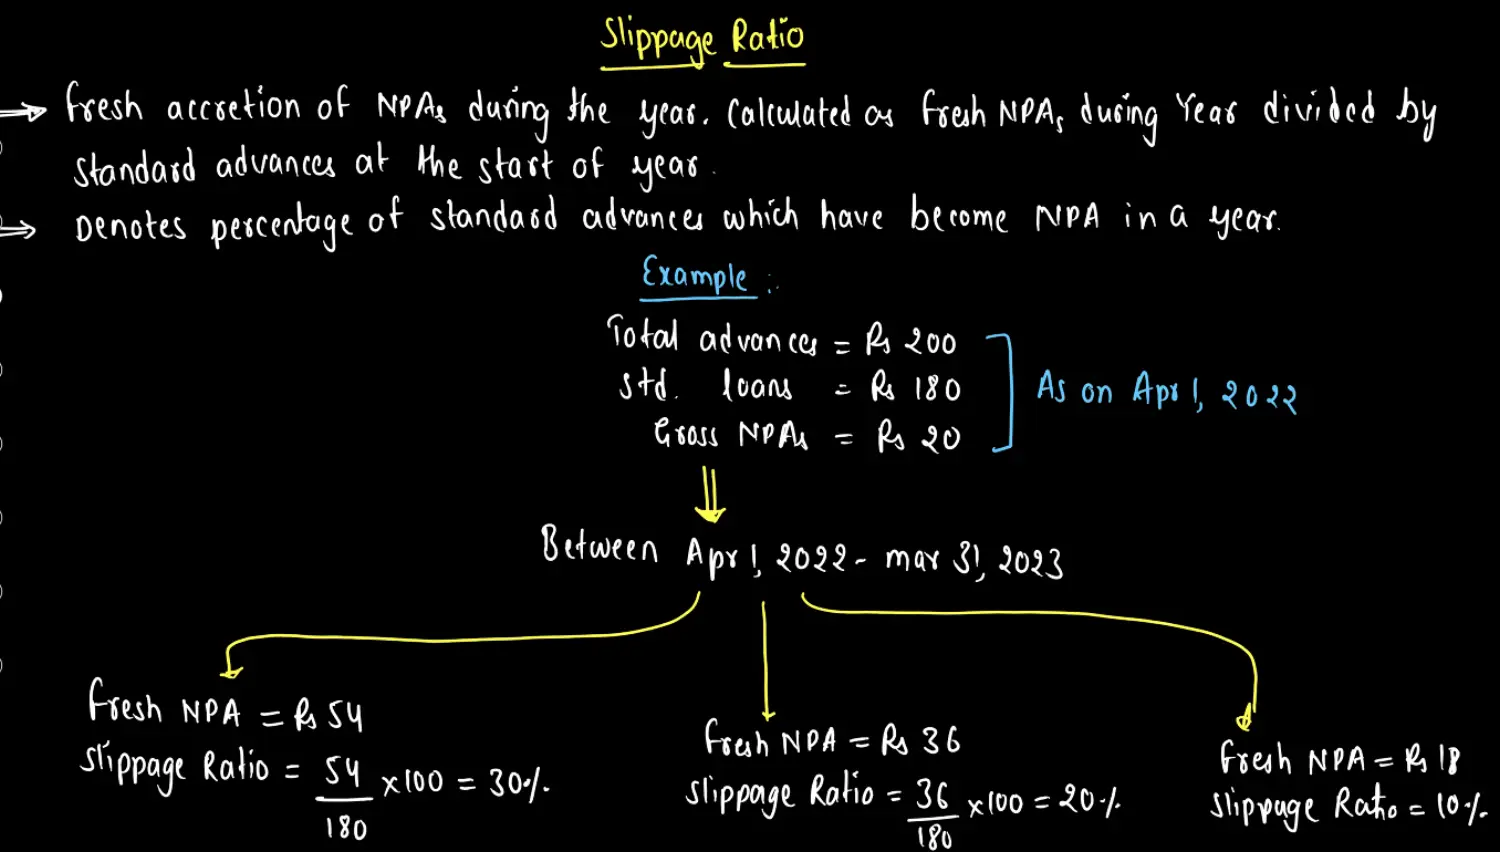 Slippage Ratio
fresh accretion of NPAs during the year. Calculated as fresh NPAs during Year divided by
standard advances at the start of year.
Denotes percentage of standard advances which have become NPA in a year.
Example :
Total advances = Rs 200
std. loans = Rs 180
Gross NPAs = Rs 20
As on Apr 1, 2022
Between Apr 1, 2022 - mar 31, 2023
fresh NPA = Rs 54
Slippage Ratio = 54/180 x100 = 30%.
fresh NPA = Rs 36
Slippage Ratio = 36/180 x100 = 20%.
fresh NPA = Rs 18
Slippage Ratio = 10%.